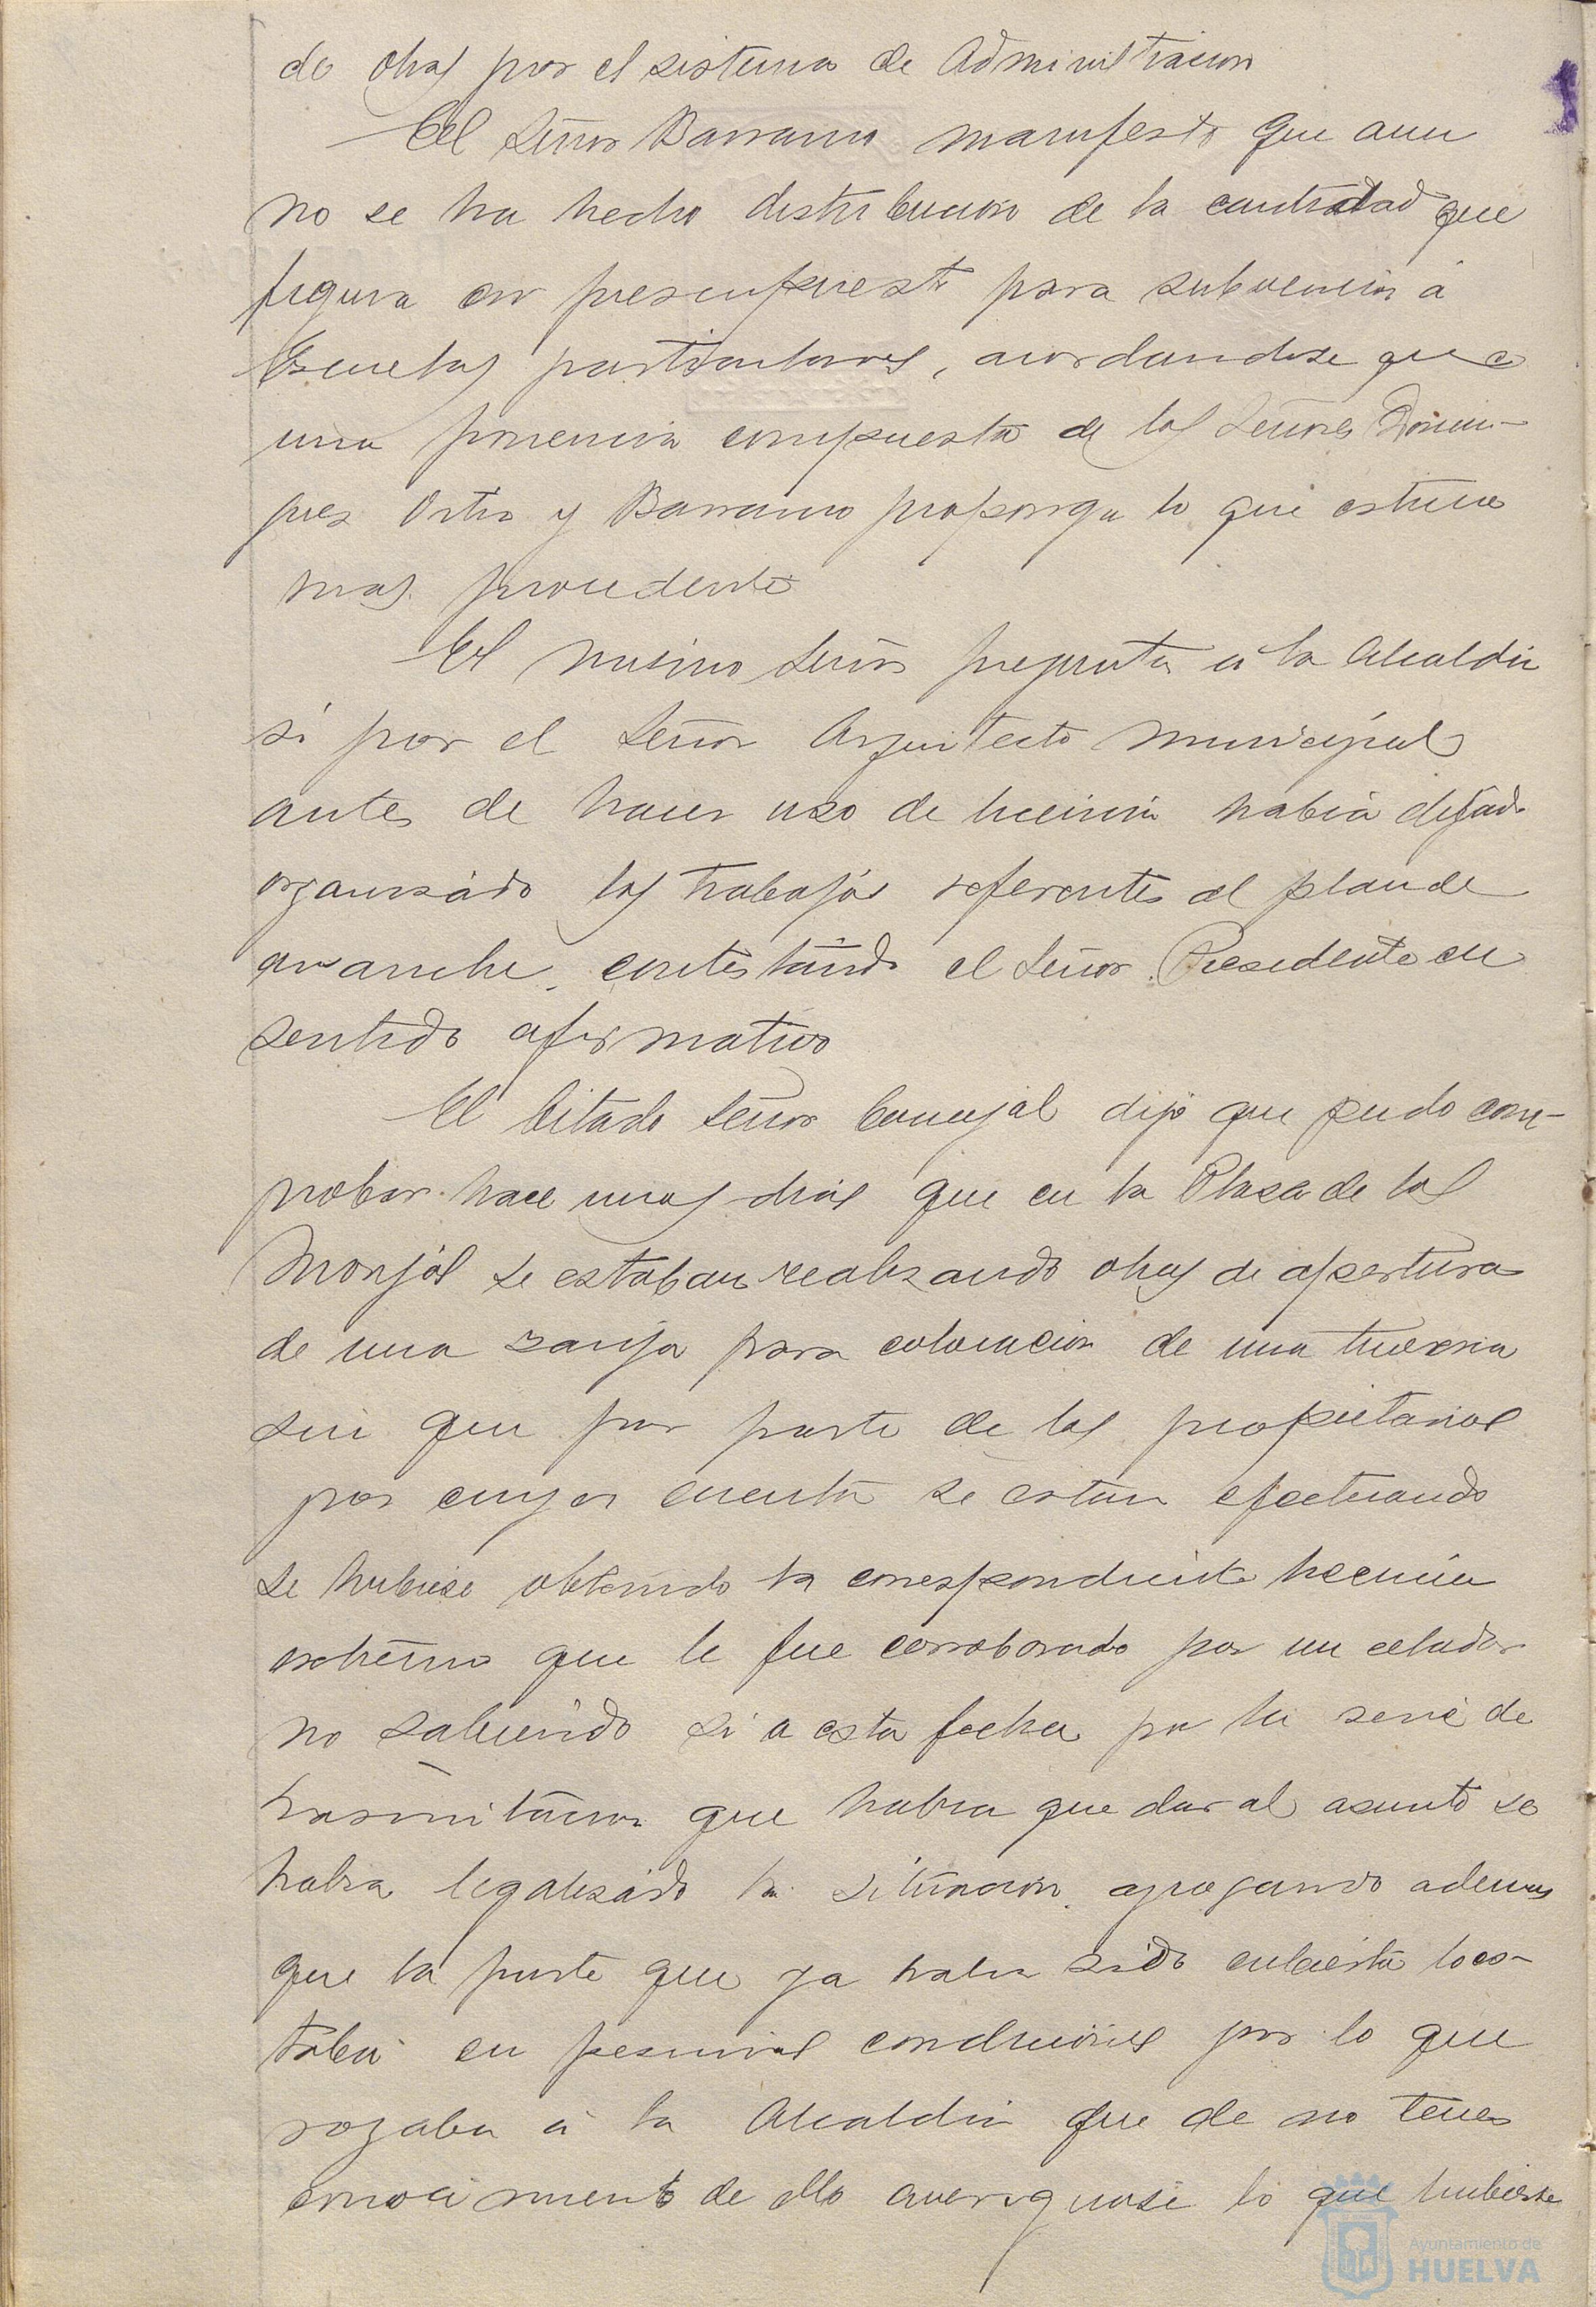 de obras por el sistema de Administracion
El Señor Barranco manifesto que aun
no se ha hecho distribucion de la cantidad que
figura en presupuesto para subvencion á
Escuelas particulares, acordandose que
una ponencia compuesta de los Señores Domin-
guez Ortiz y Barranco proponga lo que estime
mas procedente
El mismo Señor pregunta á la Alcaldia
si por el Señor Arquitecto municipal
antes de hacer uso de licencia habia dejado
organizado los trabajos referentes al plan de
ensanche, contestando el Señor Presidente en
sentido afirmativo
El citado Señor Concejal dijo que pudo com-
probar hace unos dias que en la Plaza de las
Monjas se estaban realizando obras de apertura
de una zanja para colocacion de una tuberia
sin que por parte de los propietarios
por cuya cuenta se estan efectuando
se hubiese obtenido la correspondiente licencia
extremo que le fue corroborado por un celador
no sabiendo si a esta fecha por la serie de
tramitacion que habra que dar al asunto se
habra legalizado la situacion, agregando ademas
que la parte que ya habia sido cubierta lo es-
taba en pesimas condiciones por lo que
rogaba á la Alcaldia que de no tener
conocimiento de ello averiguase lo que hubiese
Ayuntamiento de
HUELVA